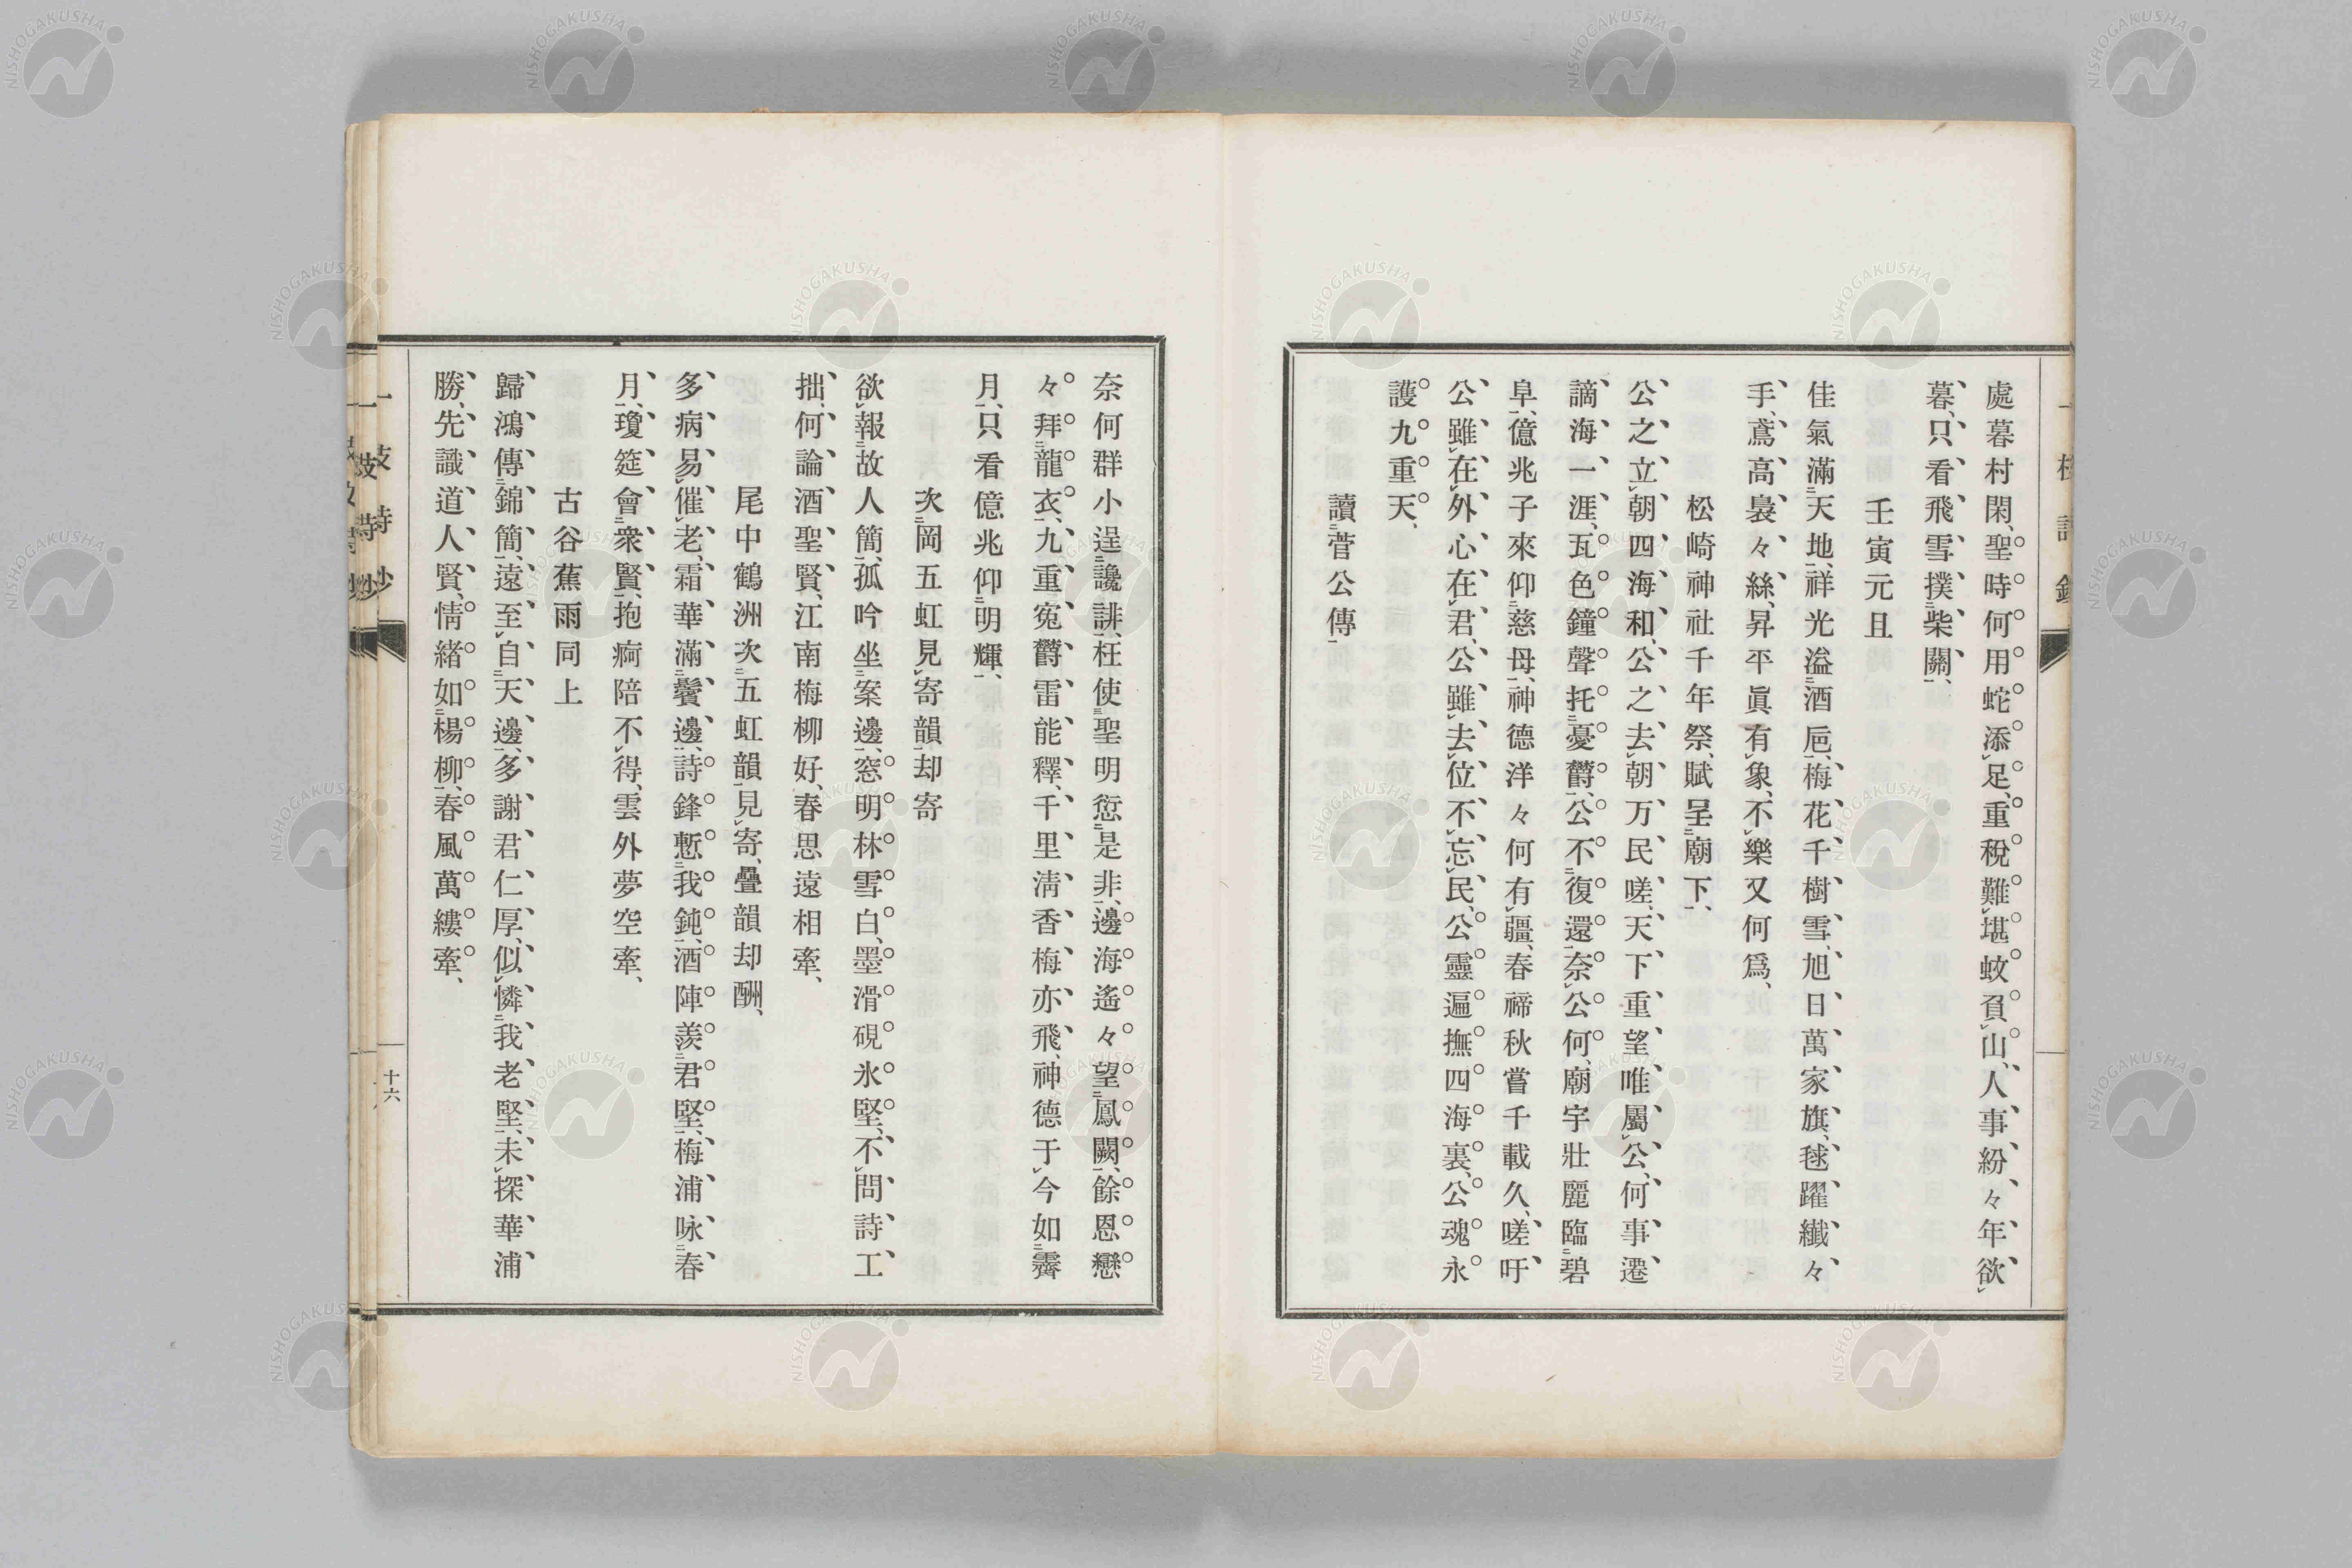 處暮村閑、聖時何用蛇添足、重稅難堪蚊負山、人事紛々年欲
暮、只看飛雪撲柴關、
壬寅元旦
佳氣滿天地、祥光溢酒巵、梅花千樹雪、旭日萬家旗、毬躍纖々
手、鳶高裊々絲、昇平眞有象、不樂又何爲、
松崎神社千年祭、賦呈廟下、
公之立朝四海和、公之去朝万民嗟、天下重望唯屬公、何事遷
謫海一涯、瓦色鐘聲托憂欝、公不復還奈公何、廟宇壯麗臨碧
阜、億兆子來仰慈母、神德洋々何有疆、春禘秋嘗千載久、嗟吁
公雖在外心在君、公雖去位不忘民、公靈遍撫四海裏、公魂永
護九重天、
讀菅公傳
奈何群小逞讒誹、枉使聖明愆是非、邊海遙々望鳳闕、餘恩戀
々拜龍衣、九重寃欝雷能釋、千里淸香梅亦飛、神德于今如霽
月、只看億兆仰明輝、
次岡五虹見寄韻却寄
欲報故人簡、孤吟坐案邊、窓明林雪白、墨滑硯氷堅、不問詩工
拙、何論酒聖賢、江南梅柳好、春思遠相牽、
尾中鶴洲次五虹韻見寄、疊韻却酬、
多病易催老、霜華滿鬢邊、詩鋒慙我鈍、酒陣羨君堅、梅浦咏春
月、瓊筵會衆賢、抱痾陪不得、雲外夢空牽、
古谷蕉雨同上
歸鴻傳錦簡、遠至自天邊、多謝君仁厚、似憐我老堅、未探華浦
勝、先識道人賢、情緒如楊柳、春風萬縷牽、
十六